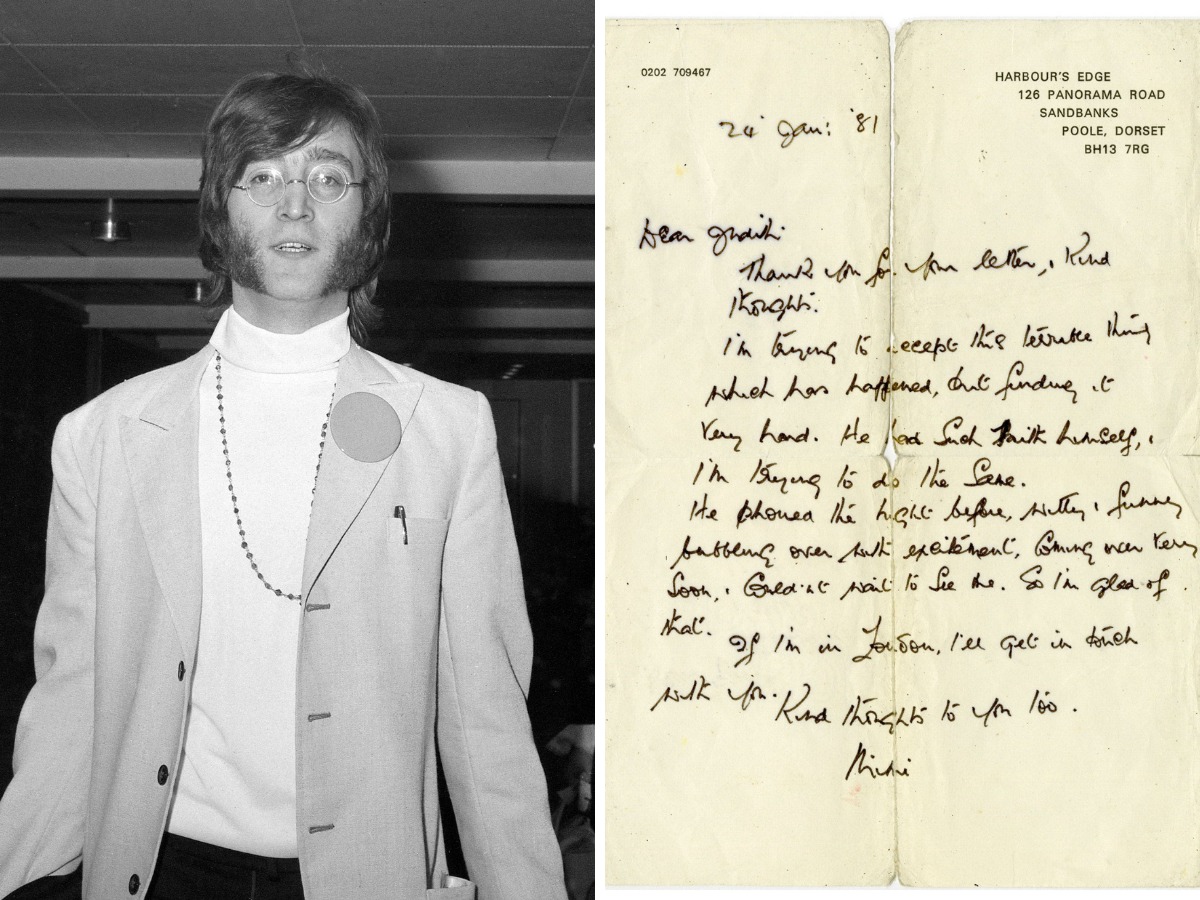 0202 709467
HARBOUR'S EDGE
126 PANORAMA ROAD
SANDBANKS
POOLE, DORSET
BH13 7RG
24 Jan: '81
Dear Judith
Thank you for your letter, & Kind
thoughts.
I'm trying to accept this terrible thing
which has happened, but finding it
Very hard. He had Such Faith himself, &
I'm trying to do the Same.
He phoned the night before, witty & funny
bubbling over with excitement, Coming over Very
Soon, & Could'nt wait to See me. So I'm glad of
that.
If I'm in London, I'll get in touch
with you.
Kind thoughts to you too.
Mimi